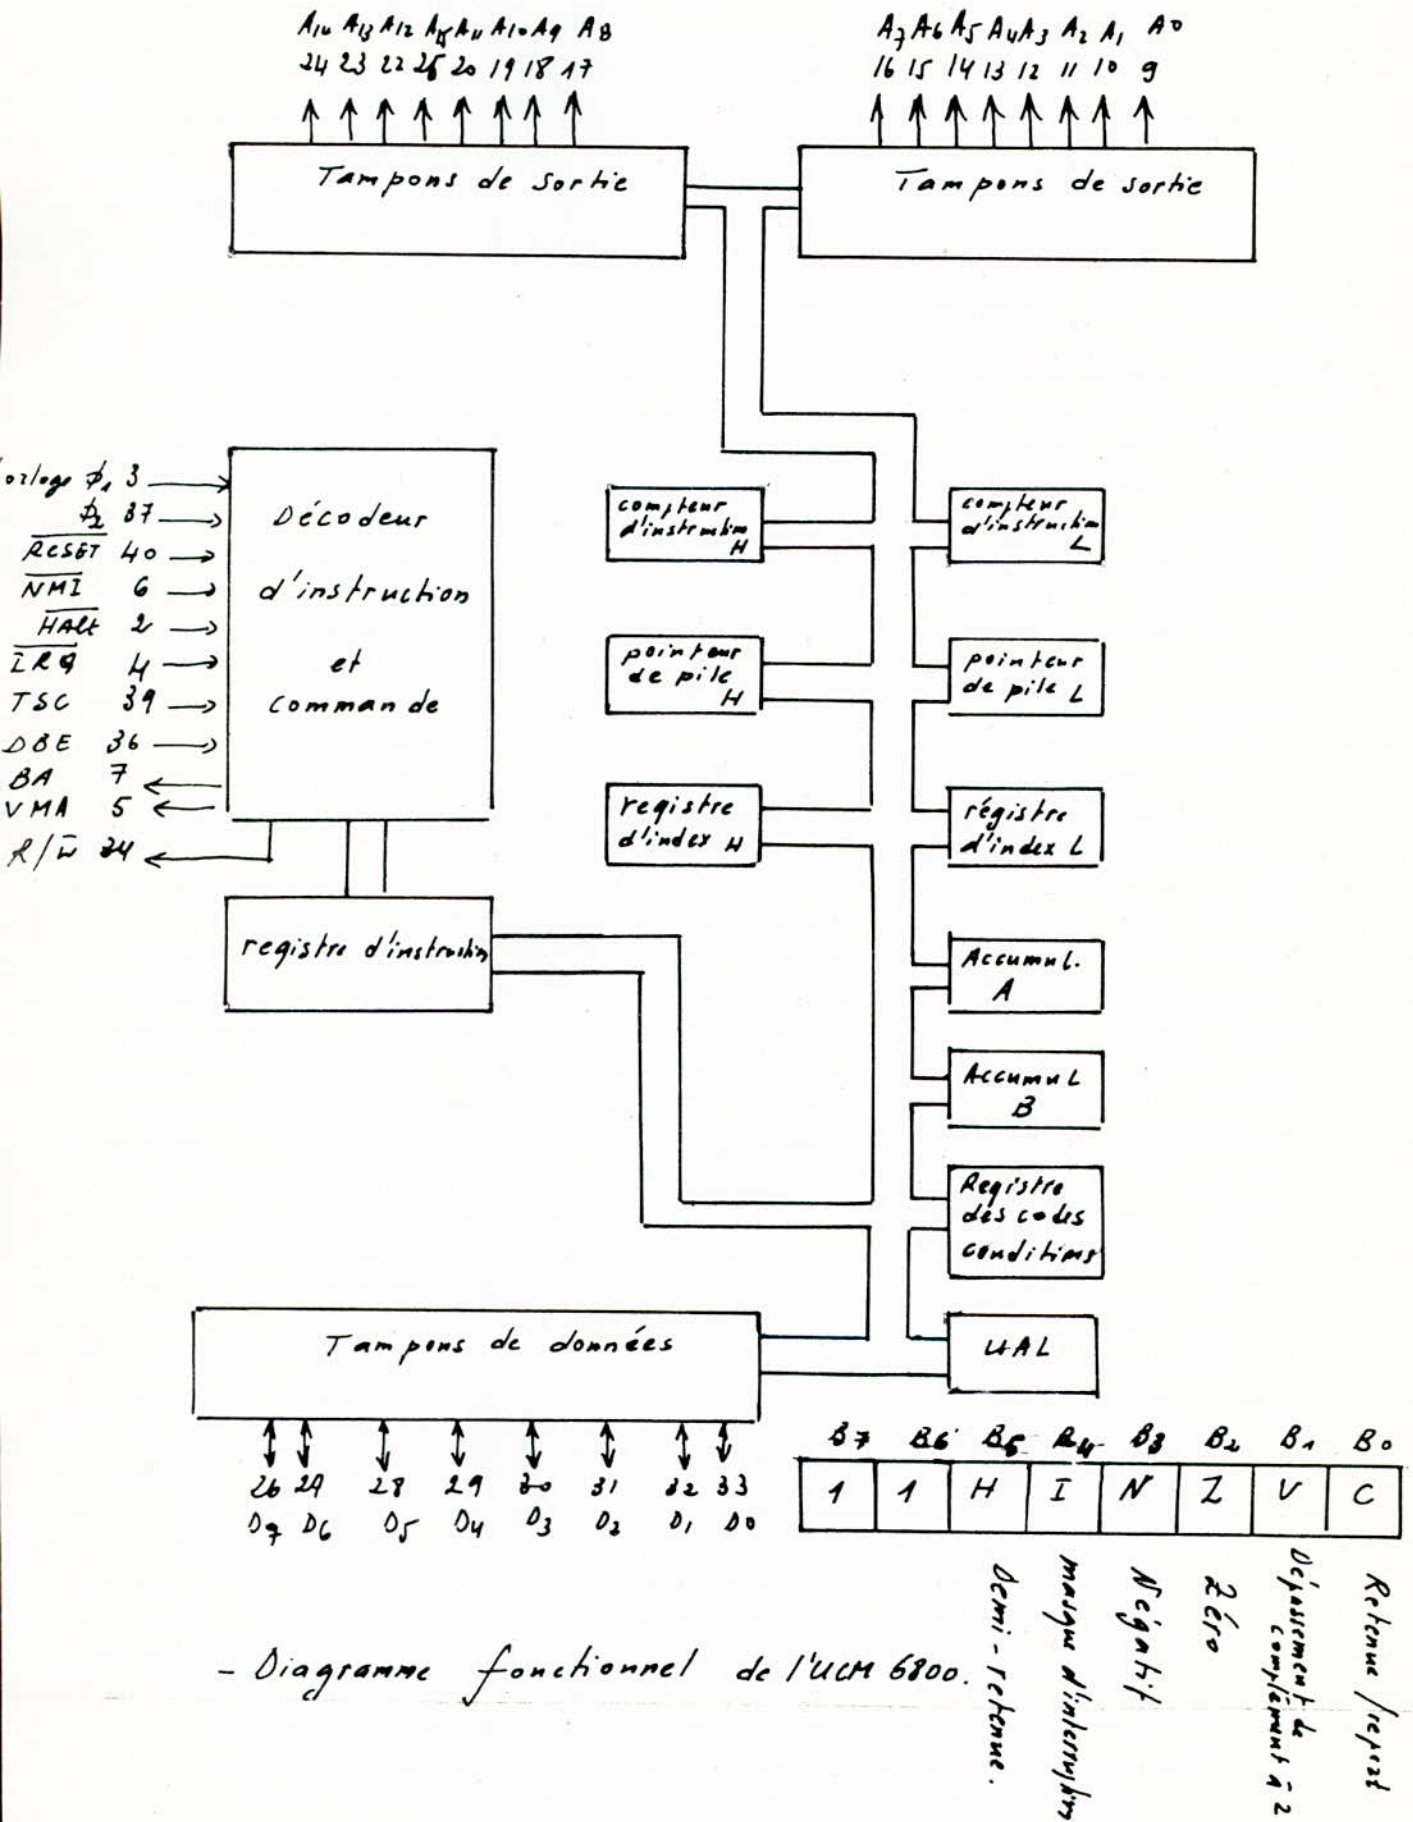 A14 A13 A12 A15 A11 A10 A9 A8
24 23 22 25 20 19 18 17
A7 A6 A5 A4 A3 A2 A1 A0
16 15 14 13 12 11 10 9
Tampons de sortie
Tampons de sortie
orloge φ1 3
φ2 37
RESET 40
NMI 6
HALt 2
IRQ 4
TSC 39
DBE 36
BA 7
VMA 5
R/W 34
Décodeur
d'instruction
et
commande
registre d'instruction
compteur
d'instruction
H
compteur
d'instruction
L
pointeur
de pile
H
pointeur
de pile L
registre
d'index H
régistre
d'index L
Accumul.
A
Accumul
B
Registre
des codes
conditions
UAL
Tampons de données
26 27 28 29 30 31 32 33
D7 D6 D5 D4 D3 D2 D1 D0
B7 B6 B5 B4 B3 B2 B1 B0
1 1 H I N Z V C
Demi-retenue.
masque d'interruption
Négatif
Zéro
Dépassement de
complément à 2
Retenue/report
- Diagramme fonctionnel de l'UCM 6800.